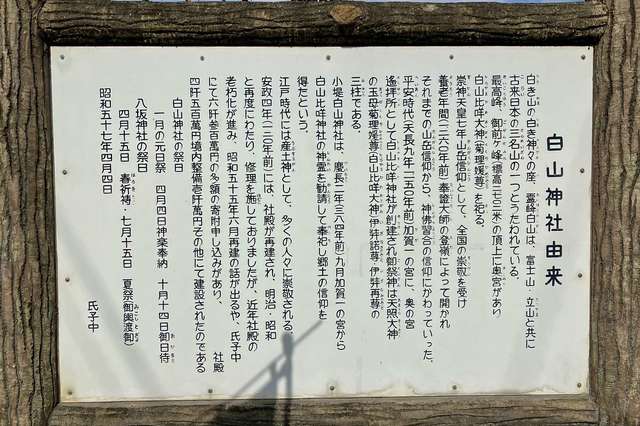 白山神社由来
白き山の白き神々の座、霊峰白山は、富士山、立山と共に
古来日本の三名山の一つとうたわれている。
最高峰、御前ヶ峰(標高二七〇二米)の頂上に奥宮があり
白山比咩大神(菊理媛尊)を祀る。
崇神天皇七年山岳信仰として、全国の崇敬を受け
養老年間(一二六〇年前)奉證大師の登嶺によって開かれ
それまでの山岳信仰から、神佛習合の信仰にかわっていった。
平安時代(天長九年一一五〇年前)加賀一の宮に、奥の宮
遙拝所として白山比咩神社が創建され御祭神は天照大神
の玉母菊理媛尊(白山比咩大神)伊弉諾尊、伊弉冉尊の
三柱である。
小堤白山神社は、慶長二年(三八四年前)九月加賀一の宮から
白山比咩神社の神霊を勧請して奉祀し郷土の信仰を
得たという。
江戸時代には産土神として、多くの人々に崇敬される
安政四年(一二〇年前)には、社殿が再建され、明治・昭和
と再度にわたり、修理を施しておりましたが、近年社殿の
老朽化が進み、昭和五十五年六月再建の話が出るや、氏子中
にて六阡参百萬円の多額の寄附申し込みがあり、 社殿
四阡五百萬円境内整備壱阡萬円その他にて建設されたのである
白山神社の祭日
一月の元日祭 四月四日神楽奉納 十月十四日御日侍
八坂神社の祭日
四月十五日 春祈祷・七月十五日 夏祭御輿渡御)
昭和五十七年四月四日
氏子中